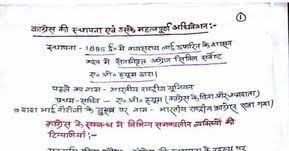 ①
कांग्रेस की स्थापना एवं उसके महत्वपूर्ण अधिवेशन:-
स्थापना - 1885 ई० में वायसराय लार्ड डफरिन के शासन
काल में सेवानिवृत्त अंग्रेज सिविल सर्वेंट
ए० ओ० ह्यूम द्वारा।
पहले का नाम - भारतीय राष्ट्रीय यूनियन
प्रथम - सचिव - ए० ओ० ह्यूम (कांग्रेस के पिता और
दादा भाई नौरोजी के सुझाव पर नाम - भारतीय राष्ट्रीय कांग्रेस रखा गया।
कांग्रेस के सम्बन्ध में विभिन्न समकालीन व्यक्तियों की
टिप्पणियां:-